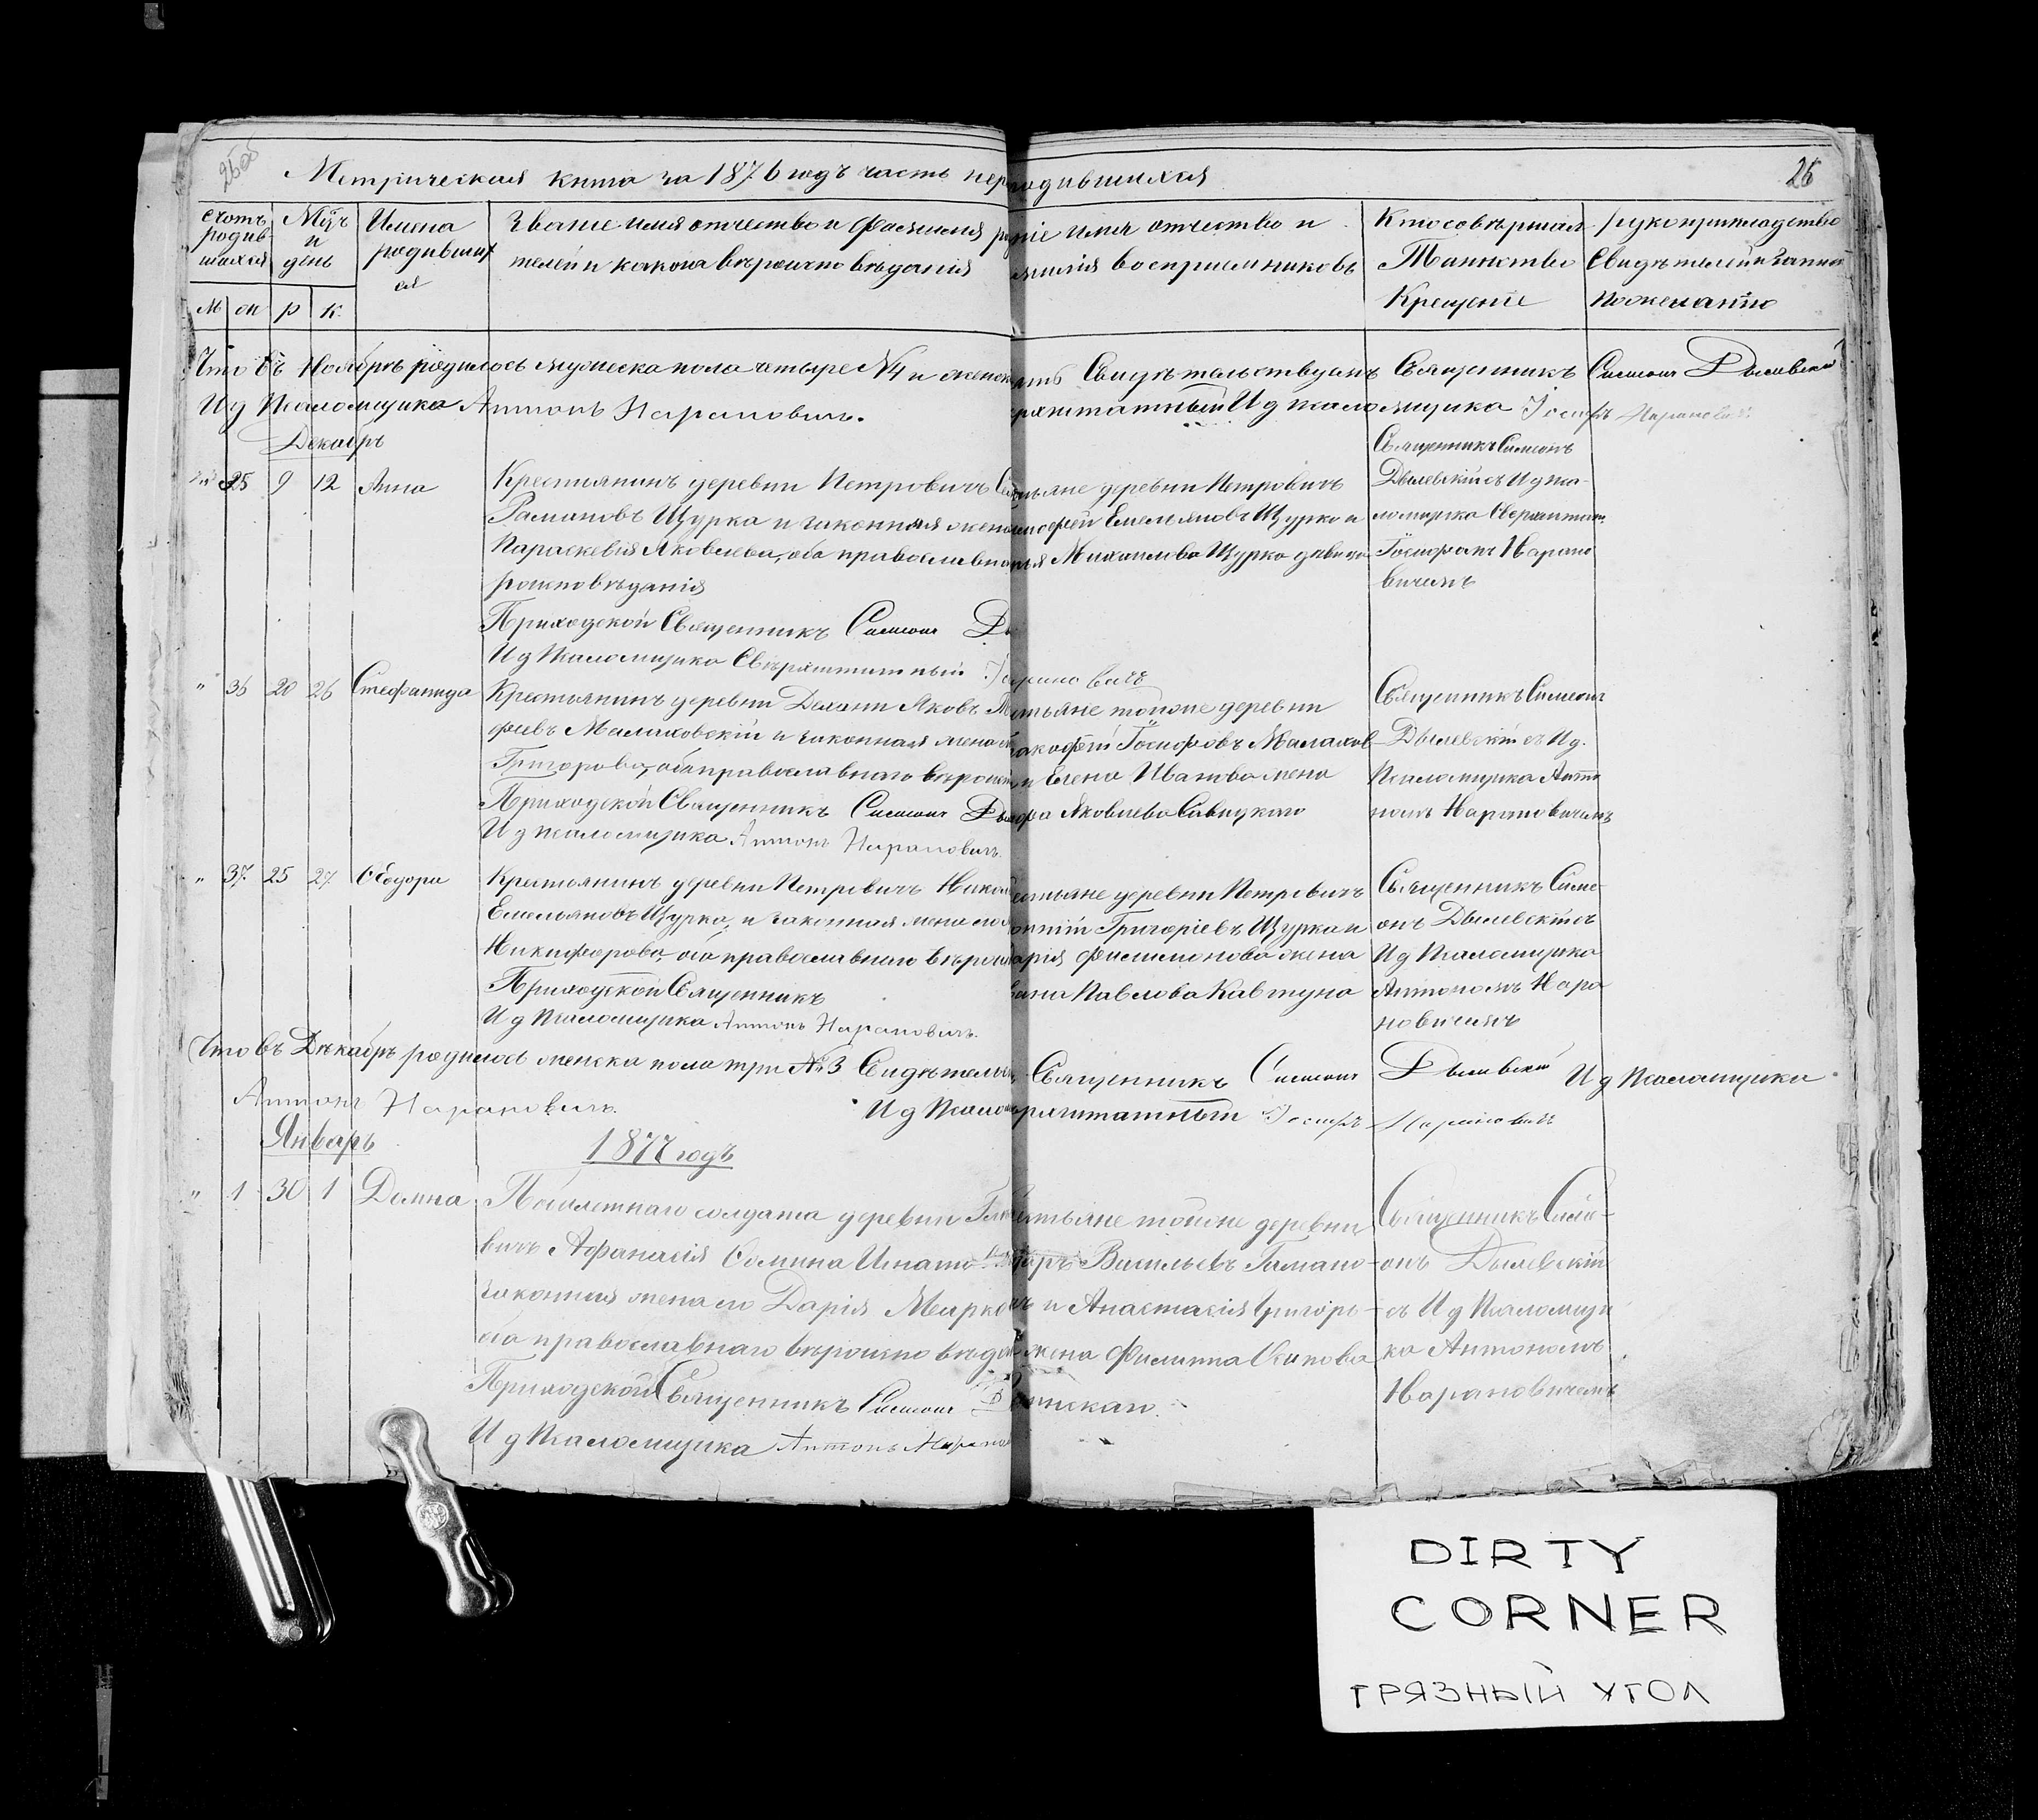 26об
Метрическая книга за 1876 годъ часть пер родившихся
26
Счотъ родив- шихся
Мѣц. и день
Имена родивших ся
Званіе имя отчество и фамилія ро
телей и какова вѣроисповѣданія
ніе имя отчество и
милія восприемниковъ
Кто совѣршал
Таинство
Крещеніе
рукоприкладство
Свидѣтелей и
по желанію
М жп р к.
Что въ Ноябрѣ родилось мужеска пола четыре №4 и женск
Свидѣтельствуютъ Священникъ Симеон Дылевскій
И д Псаломщика Антонъ Нарановичъ.
рхштатный И д псаломщика Іосифъ Нарановичъ
Декабрь
35 9 12 Анна
Крестьянинъ деревни Петровичъ
Романовъ Щурка и законная жена
Параскевія Яковлева, оба православна
роисповѣданія
Приходской Священникъ Симеон Ды
И д Псаломщика Свѣрхштатный
тьяне деревни Петровичъ
Емельяновъ Щурко и
Михаилова Щурко девица
Священникъ Симеонъ
Дылевскій съ И д пса-
ломщика Сверхштат.
Іосифомъ Нарано
вичемъ
" 36 20 26 Стефанида
Крестьянинъ деревни Яковъ
фиевъ Малаховскій и законная жена
Григорова, оба православнаго вѣроис
Приходской Священникъ Симеон Ды
И д псаломщика Антонъ Нарановичъ.
рановичъ
тьяне тойже деревни
Іосифовъ Малахов
и Елена Иванова жена
Яковлева Савицкаго
Священникъ Симеон
Дылевскій съ И д.
Псаломщика Анто
номъ Нарановичемъ
" 37. 25 27. Ѳеодора
Крестьянинъ деревни Петровичъ Никол
Емельяновъ Щурко, и законная жена его
Никифорова оба православнаго вѣрои
Приходской Священникъ
И д Псаломщика Антонъ Нарановичъ.
естьяне деревни Петровичъ
Григоріевъ Щурка и
арія Филимонова жена
вана Павлова Кавтуна
Священникъ Симе-
онъ Дылевскій съ
И д Псаломщика
Антономъ Нара
новичемъ
Что въ Декабрѣ родилось женска пола три №3 Свидѣтельс
Священникъ Симеон Дылевскій И д Псаломщика
Антонъ Нарановичъ.
И д Псалом рхштатный Іосифъ Нарановичъ
Январь
1877 годъ
" 1 30 1 Домна
солдата деревни
вичъ Афанасія Ѳомина
законная жена его Дарія Марко
оба православнаго вѣроисповѣдан
Приходской Священникъ Симеон
И д Псаломщика Антонъ Нарано
стьяне тойже деревни
Васильевъ Гамано-
и Анастасія Григорь-
жена Филиппа Осипова
нскаго.
Священникъ Симе-
онъ Дылевскій
съ И д Псаломщи
ка Антономъ
Нарановичемъ
DIRTY
CORNER
ГРЯЗНЫЙ УГОЛ